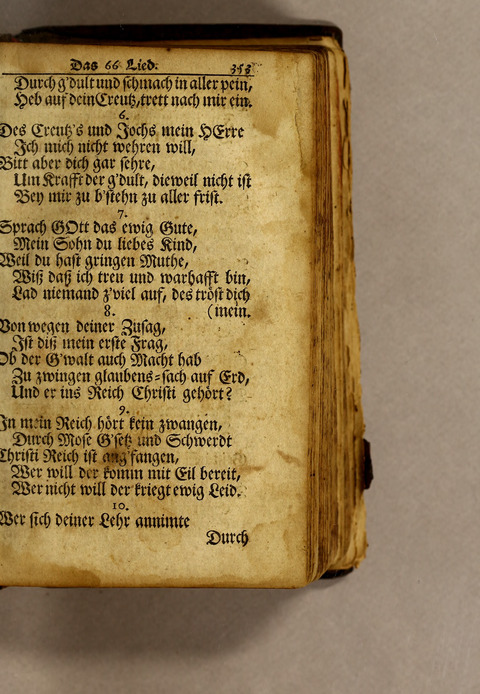 Das 66 Lied. 353
Durch g'dult und schmach in aller pein,
Heb auf dein Creutz, trett nach mir ein.
6.
Des Creutz's und Jochs mein HErre
Ich mich nicht wehren will,
Bitt aber dich gar sehre,
Um Krafft der g'dult, dieweil nicht ist
Bey mir zu b'stehn zu aller frist.
7.
Sprach GOtt das ewig Gute,
Mein Sohn du liebes Kind,
Weil du hast gringen Muthe,
Wiß daß ich treu und warhafft bin,
Lad niemand z'viel auf, des tröst dich
8. (mein.
Von wegen deiner Zusag,
Ist diß mein erste Frag,
Ob der G'walt auch Macht hab
Zu zwingen glaubens-sach auf Erd,
Und er ins Reich Christi gehört?
9.
In mein Reich hört kein zwangen,
Durch Mose G'setz und Schwerdt
Christi Reich ist ang'fangen,
Wer will der komm mit Eil bereit,
Wer nicht will der kriegt ewig Leid.
10.
Wer sich deiner Lehr annimte
Durch